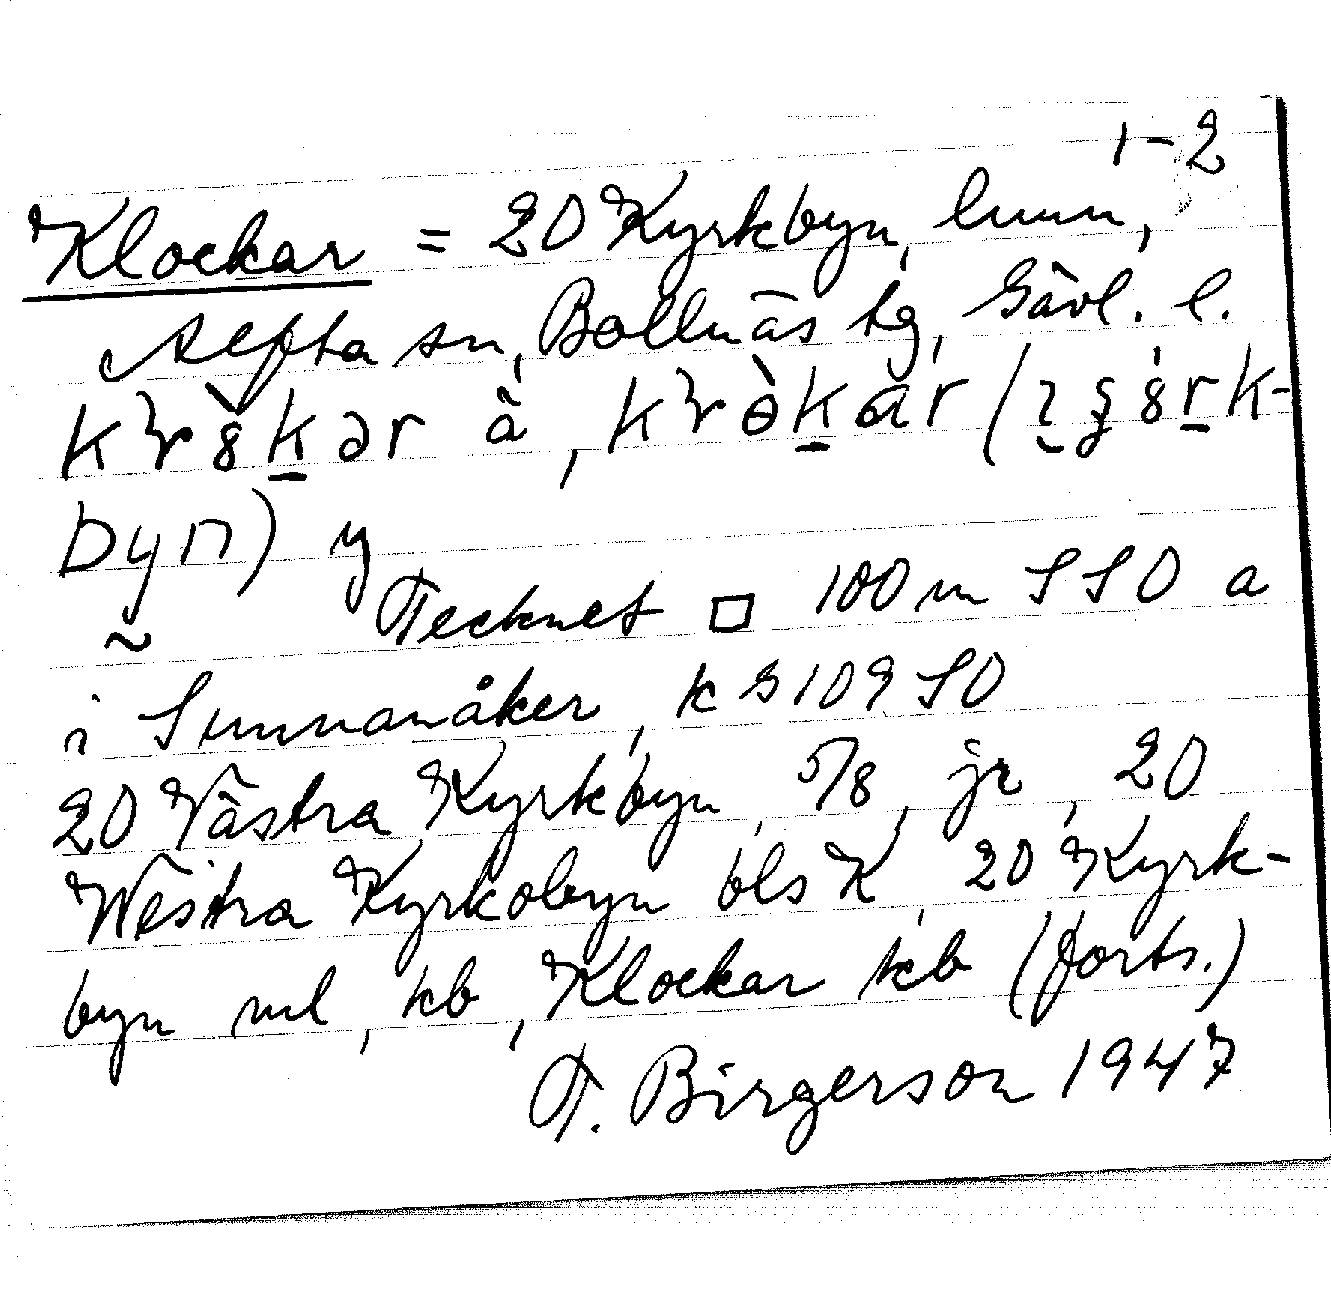 1-2
Klockar = 20 Kyrkbyn, lunn,
Alfta sn, Bollnäs tg, Gävl. l.
byn) y
Tecknet □ 100 m SSO a
i Sunnanåker, k G109 SO
20 Västra Kyrkbyn, 5/8, jr, 20
Westra Kyrkobyn bls K, 20 Kyrk-
byn ml, kb, Klockar kb (forts.)
T. Birgerson 1947